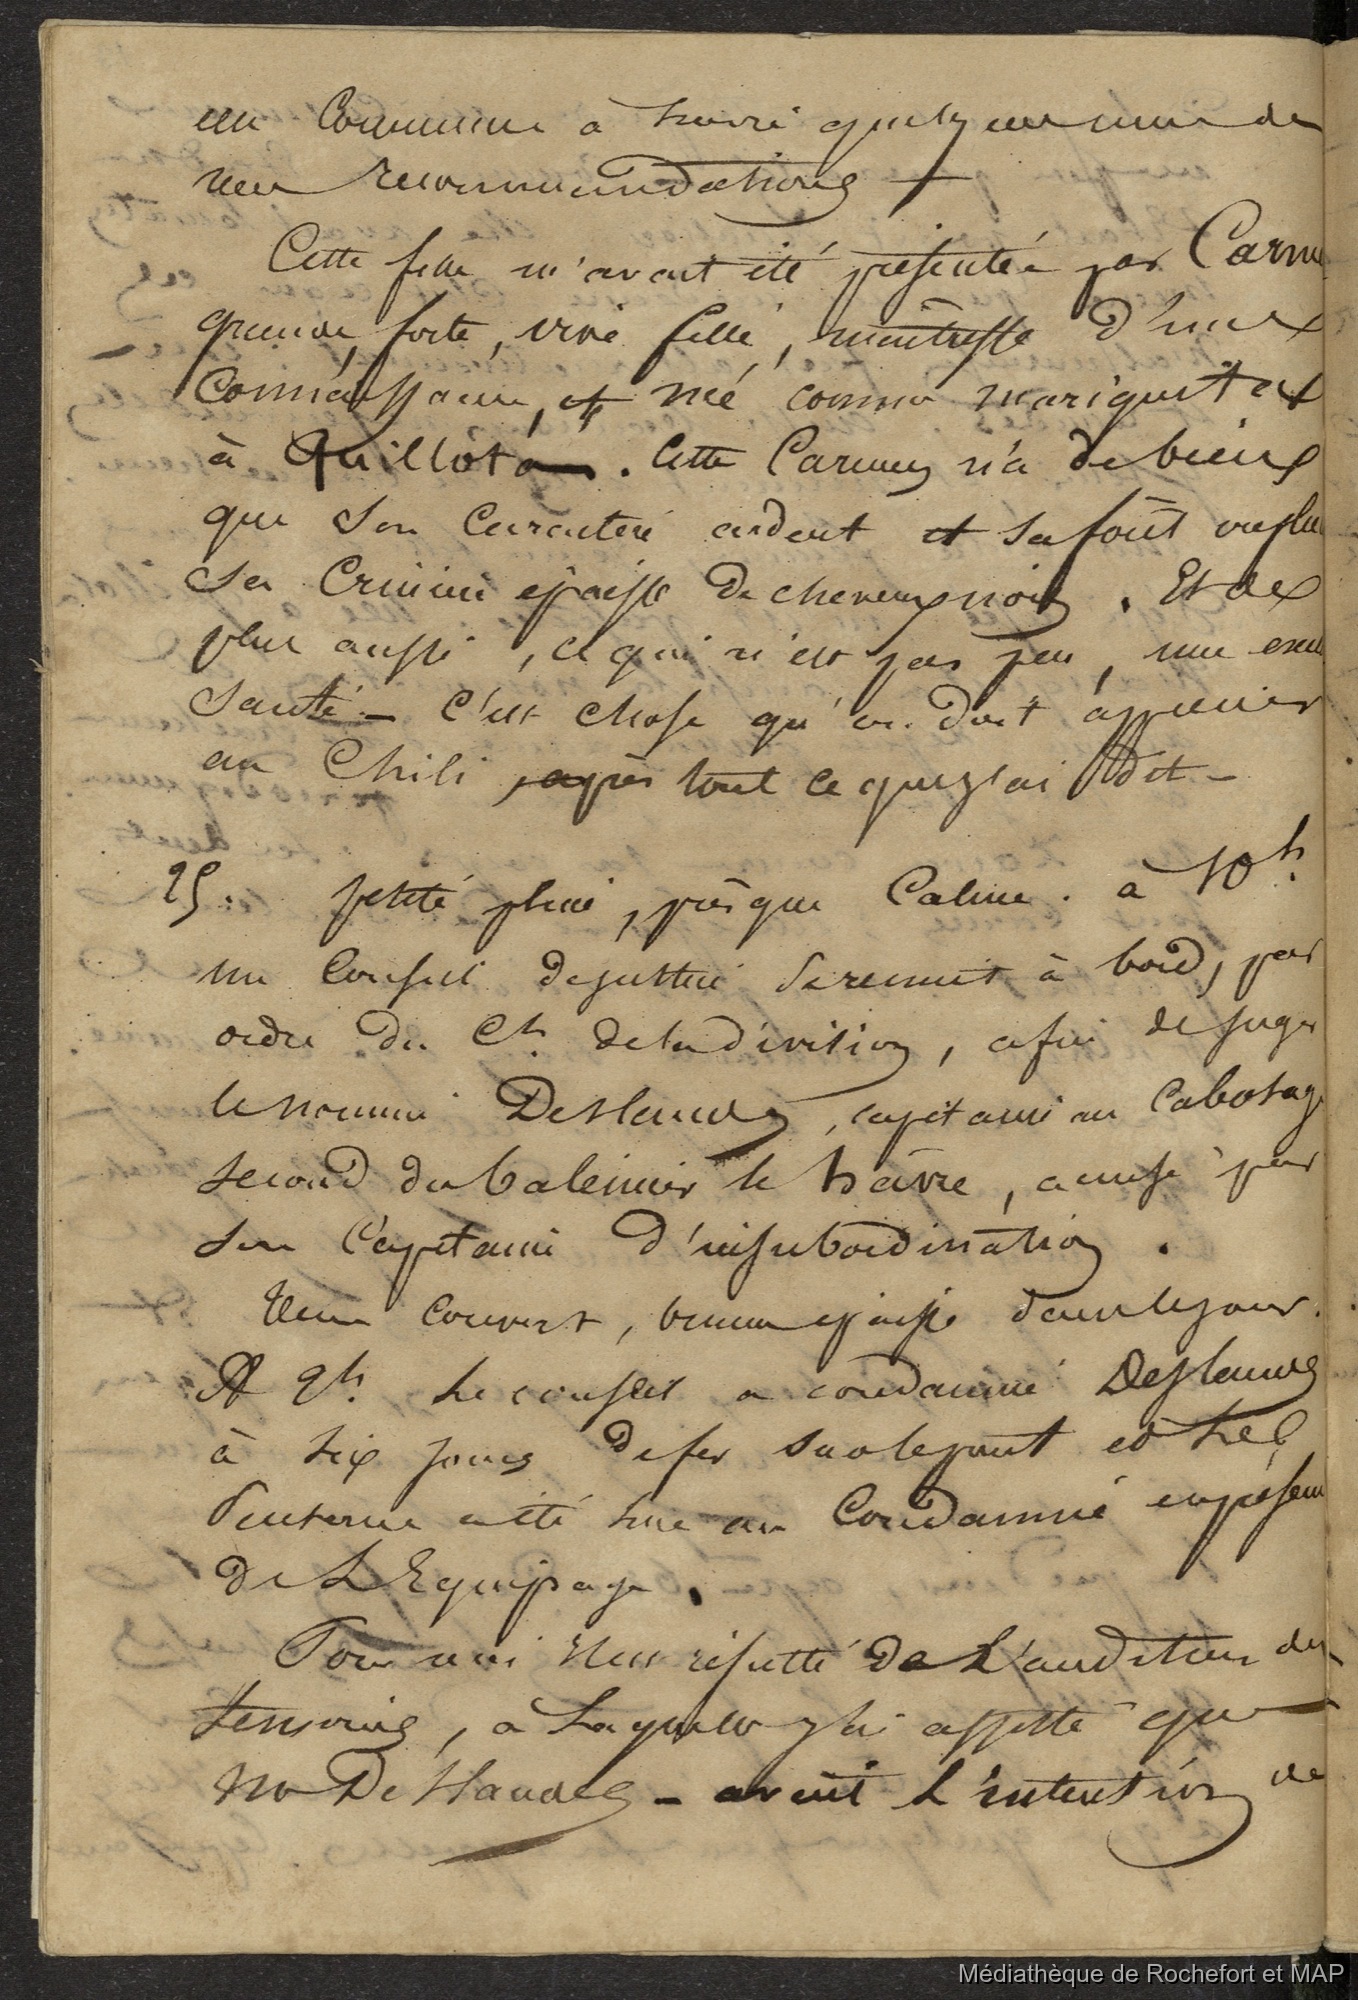 a commencé à suivre quelques unes de
mes recommandations —
Cette fille m'avait été présentée par Carmen
grande, forte, vive fille, maîtresse d'une
connaissance, et née comme Mariquita
à Quillota. Cette Carmen n'a de bien
que son caractère ardent et sa
sa crinière épaisse de cheveux noirs. Et de
plus aussi, ce qui n'est pas peu, une
santé — c'est chose qu'on doit apprécier
au Chili, après tout ce que j'ai dit —
25. petite pluie, presque calme. à 10h.
un conseil de justice se réunit à bord, par
ordre du Ct. de la division, afin de juger
le nommé Deslandes, capitaine au cabotage
second du baleinier le havre, accusé par
son capitaine d'insubordination.
Tems couvert, brume épaisse dans le jour.
A 2h. le conseil a condamné Deslandes
à six jours de fer sur le pont et la
sentence a été lue au condamné en présence
de L'Equipage.
Pour moi il est résulté de L'audition des
temoins, à Laquelle j'ai assisté que
Mr Deslandes — avait L'intention de